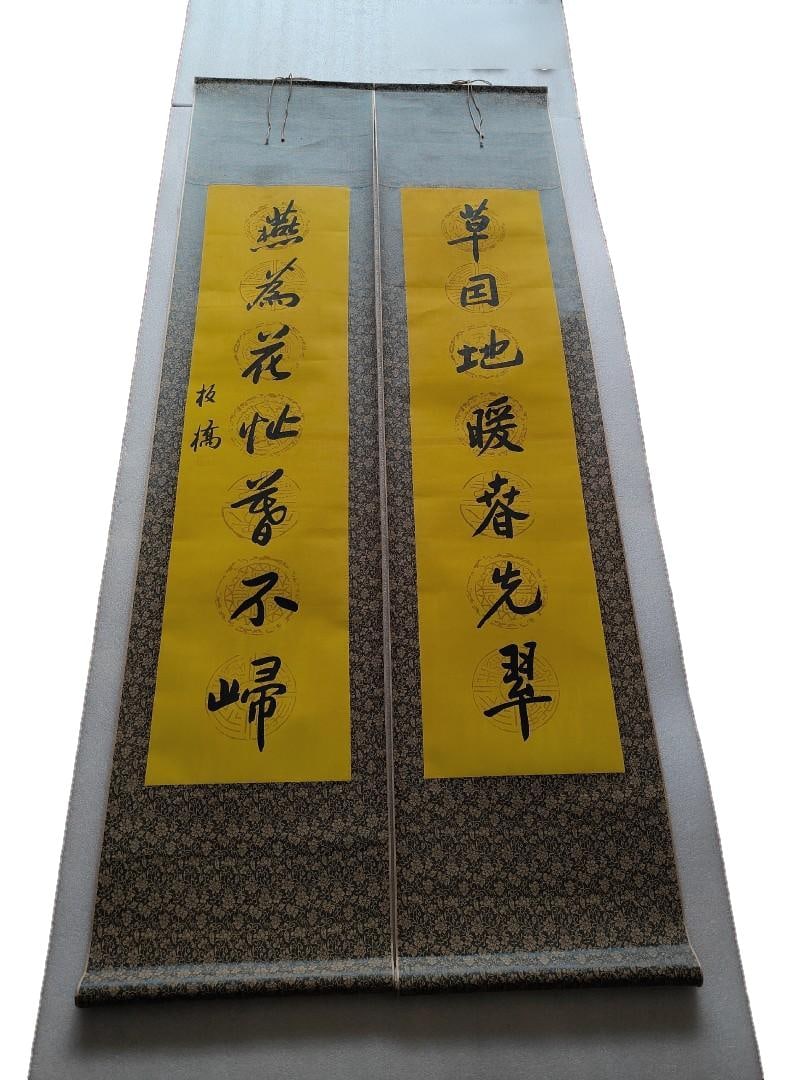 草因地暖春先翠
燕為花忙暮不歸
板橋